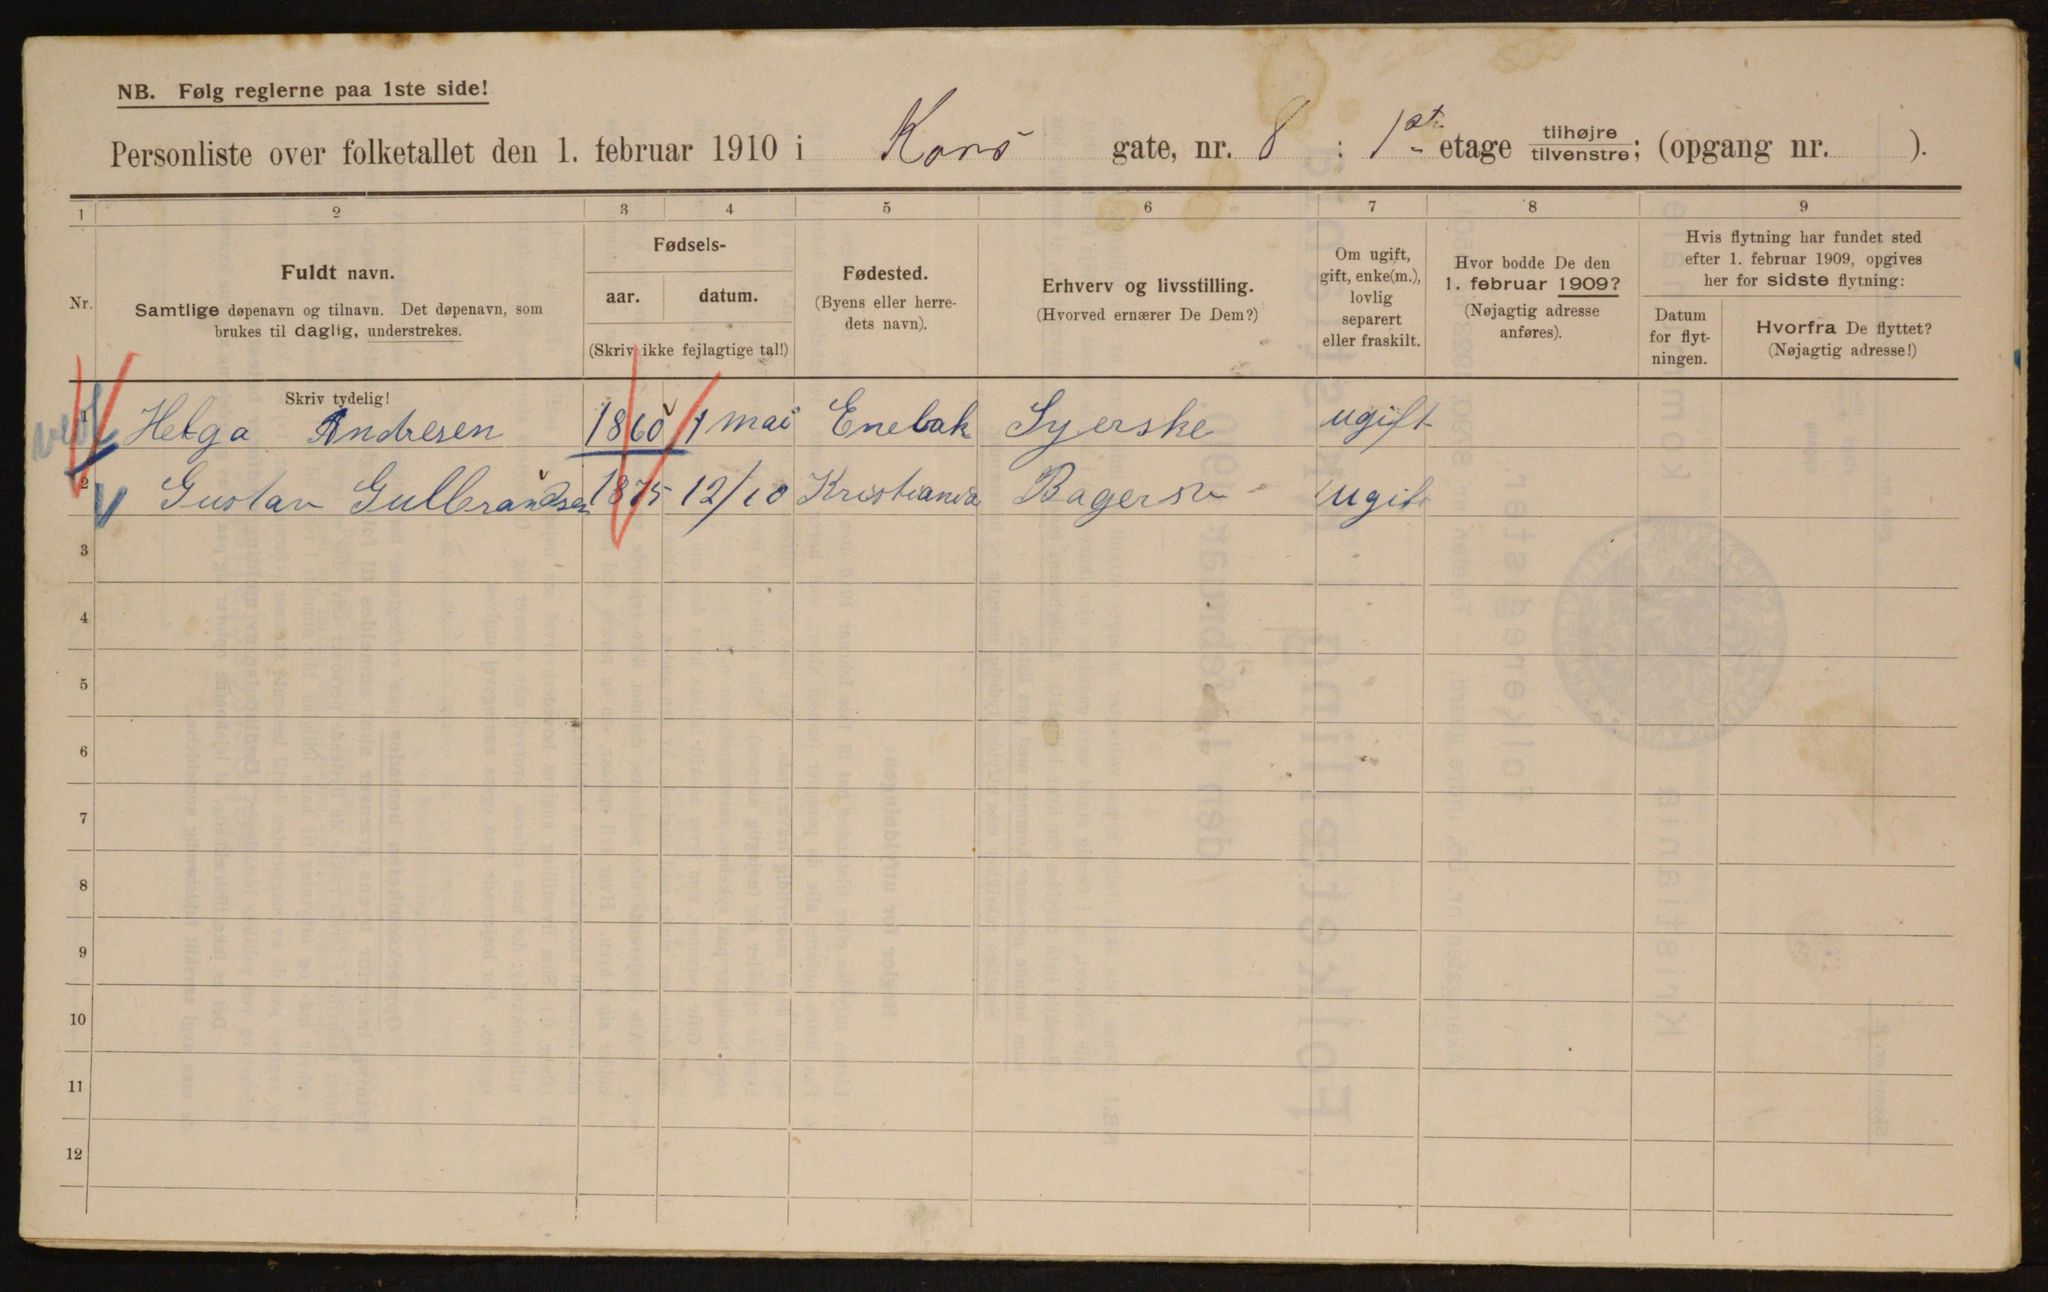 NB. Følg reglerne paa 1ste side!
Personliste over folketallet den 1. februar 1910 i Kors gate, nr. 8 : 1ste etage tilhøjre tilvenstre; (opgang nr. ).
1 2 3 4 5 6 7 8 9
Nr.
Fuldt navn.
Samtlige døpenavn og tilnavn. Det døpenavn, som
brukes til daglig, understrekes.
Skriv tydelig!
Fødsels-
aar. datum.
(Skriv ikke fejlagtige tal!)
Fødested.
(Byens eller herre-
dets navn).
Erhverv og livsstilling.
(Hvorved ernærer De Dem?)
Om ugift,
gift, enke(m.),
lovlig
separert
eller fraskilt.
Hvor bodde De den
1. februar 1909?
(Nøjagtig adresse
anføres).
Hvis flytning har fundet sted
efter 1. februar 1909, opgives
her for sidste flytning:
Datum
for flyt-
ningen.
Hvorfra De flyttet?
(Nøjagtig adresse!)
1 Helga Andresen 1860 1 mai Enebak Syerske ugift
2 Gustav Gulbrandsen 1875 12/10 Kristiania Bagersv ugift
3
4
5
6
7
8
9
10
11
12